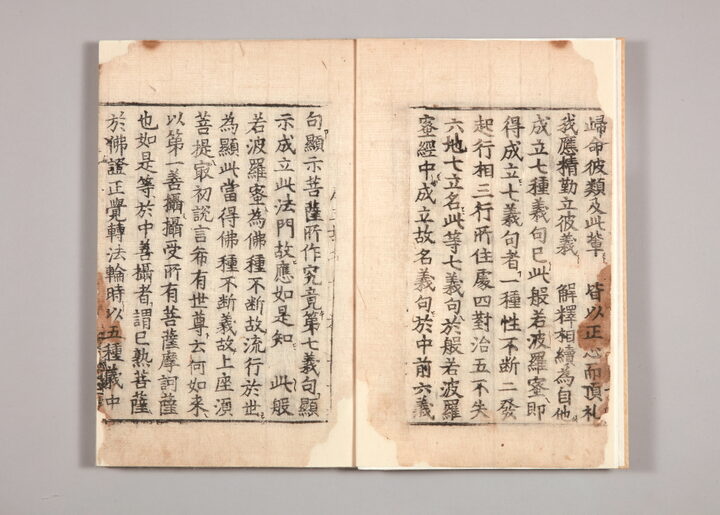 歸命彼類及此輩 皆以正心而頂礼
我應精勤立彼義 解釋相續為自他
成立七種義句已此般若波羅蜜即
得成立七義句者一種性不斷二發
起行相三行所住處四對治五不失
六地七立名此等七義句於般若波羅
蜜經中成立故名義句於中前六義
句顯示菩薩所作究竟第七義句顯
示成立此法門故應如是知 此般
若波羅蜜為佛種不斷故流行於世
為顯此當得佛種不斷義故上座須
菩提冣初說言希有世尊云何如来
以第一善攝攝受所有菩薩摩訶薩
也如是等於中善攝者謂已熟菩薩
於佛證正覺轉法輪時以五種義中